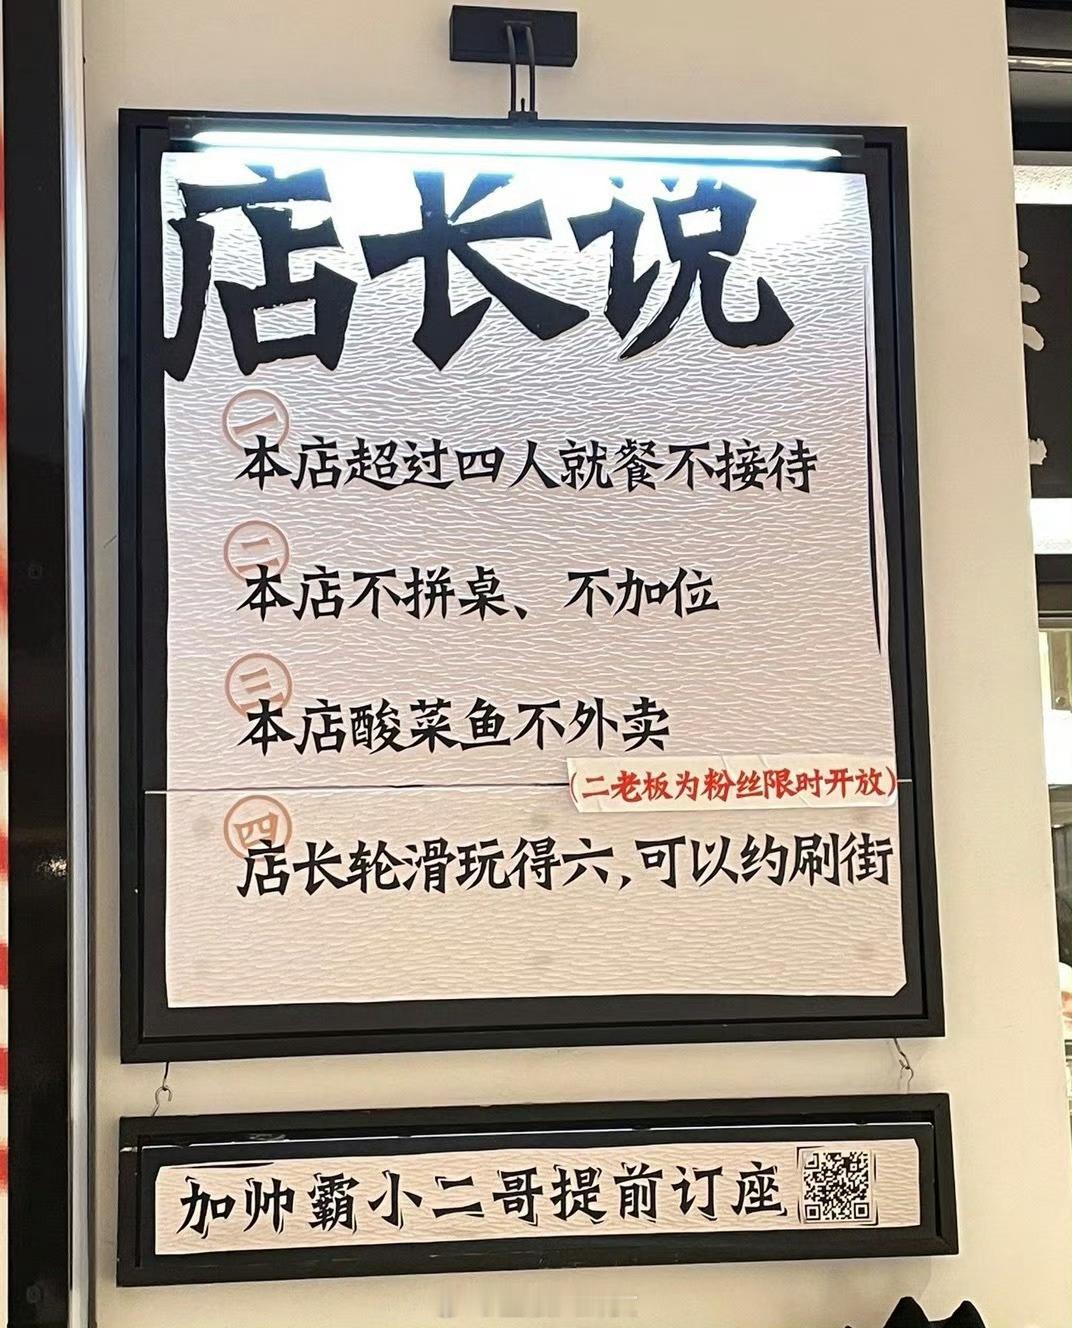 店长说
一
本店超过四人就餐不接待
二
本店不拼桌、不加位
三
本店酸菜鱼不外卖
(二老板为粉丝限时开放)
四
店长轮滑玩得六,可以约刷街
加帅霸小二哥提前订座